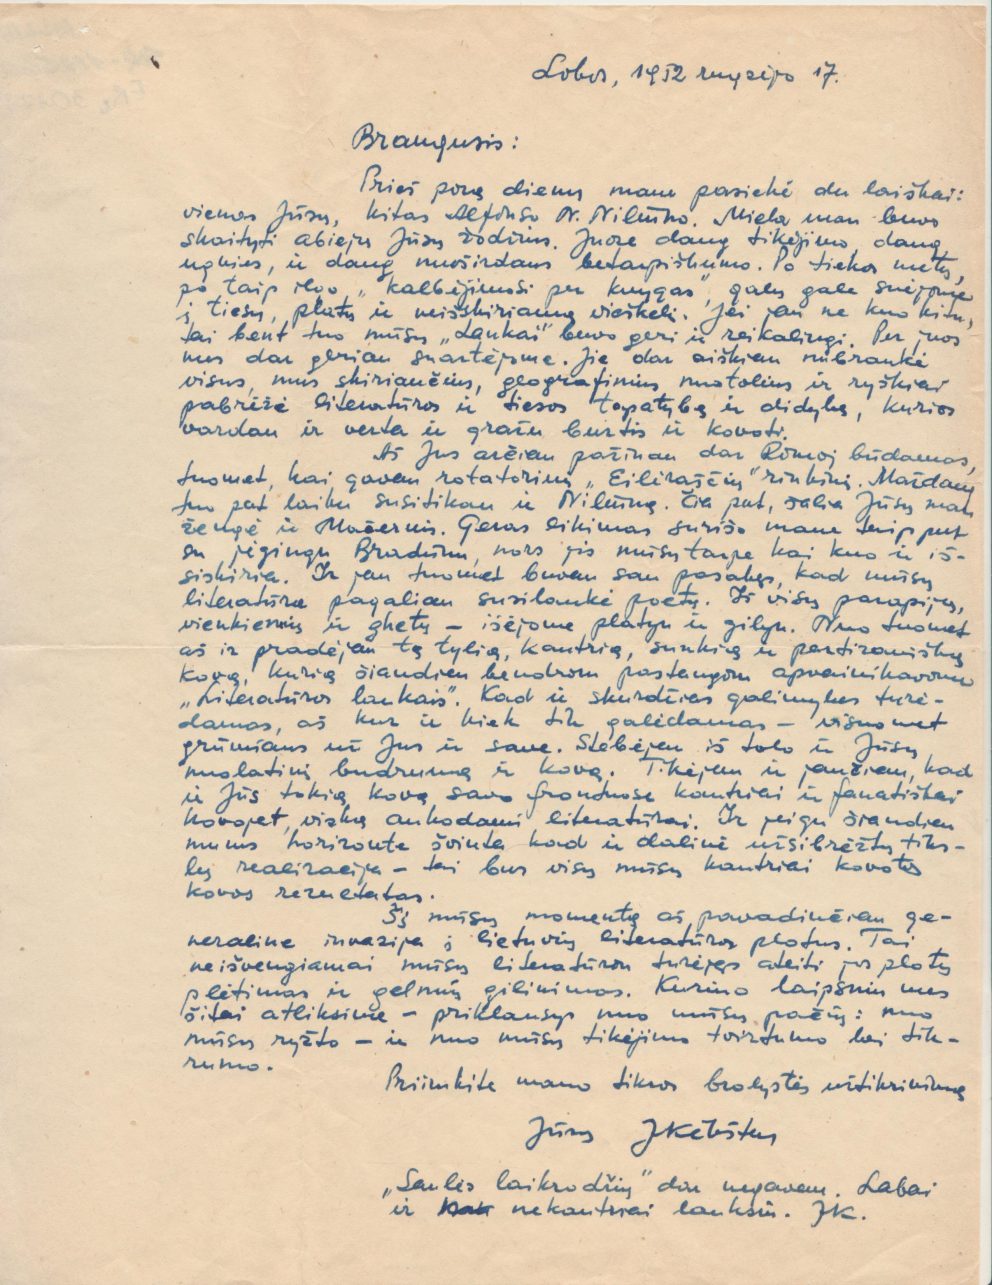 Lobos, 1952 rugsėjo 17.
Brangusis:
Prieš porą dienų mane pasiekė du laiškai:
vienas Jūsų, kitas Alfonso N. Niliūno. Miela man buvo
skaityti abiejų Jūsų žodžius. Juose daug tikėjimo, daug
ugnies, ir daug nuoširdaus betarpiškumo. Po tiekos metų,
po taip ilgo „kalbėjimosi per knygas", galų gale suėjome
į tiesų, platų ir neišskiriamą vieškelį. Jei jau ne kuo kitu,
tai bent tuo mūsų „Lankai" buvo geri ir reikalingi. Per juos
mes dar geriau suartėjome. Jie dar aiškiau nubraukė
visus, mus skiriančius, geografinius nuotolius ir ryškiai
pabrėžė literatūros ir tiesos tapatybę ir didybę, kurios
vardan ir verta ir gražu burtis ir kovoti.
Aš Jus arčiau pažinau dar Romoj būdamas,
tuomet, kai gavau rotatorinį „Eilėraščių" rinkinį. Maždaug
tuo pat laiku susitikau ir Niliūną. Čia pat, šalia Jūsų man
žengė ir Mačernis. Geras likimas surišo mane taip pat
su jėgingu Bradūnu, nors jis mūsų tarpe kai kuo ir iš-
siskiria. Ir jau tuomet buvau sau pasakęs, kad mūsų
literatūra pagaliau susilaukė poetų. Iš visų parapijų,
vienkiemių ir ghetų – išėjome platyn ir gilyn. Nuo tuomet
aš ir pradėjau tą tylią, kantrią, sunkią ir partizanišką
kovą, kurią šiandien bendrom pastangom apvainikavome
„Literatūros lankais". Kad ir skurdžias galimybes turė-
damas, aš kur ir kiek tik galėdamas – visuomet
grūmiaus už Jus ir save. Stebėjau iš tolo ir Jūsų
nuolatinį budrumą ir kovą. Tikėjau ir jaučiau, kad
ir Jūs tokią kovą savo frontuose kantriai ir fanatiškai
kovojat, viską aukodami literatūrai. Ir jeigu šiandien
mums horizonte švinta kad ir dalinė užsibrėžtų tiks-
lų realizacija – tai bus visų mūsų kantriai kovotos
kovos rezultatas.
Šį mūsų momentą aš pavadinčiau ge-
neraline invazija į lietuvių literatūros plotus. Tai
neišvengiamai mūsų literatūron turėjęs ateiti jos plotų
plėtimas ir gelmių gilinimas. Kuriuo laipsniu mes
šitai atliksime – priklausys nuo mūsų pačių: nuo
mūsų ryžto – ir nuo mūsų tikėjimo tvirtumo bei tik-
rumo.
Priimkite mano tikros brolystės užtikrinimą
Jūsų JKėkštas
„Saulės laikrodžių" dar negavau. Labai
ir nekantriai lauksiu. JK.